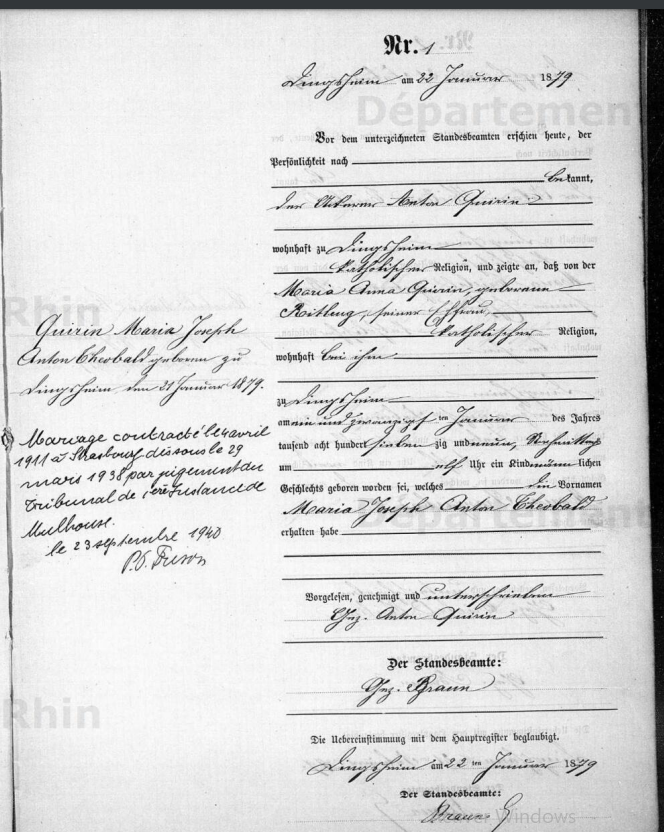 Nr. 1
Dingsheim am 22 Januar 1879
Vor dem unterzeichneten Standesbeamten erschien heute, der
Persönlichkeit nach
bekannt,
der Ackerer Anton Quirin
wohnhaft zu Dingsheim
katholischer Religion, und zeigte an, daß von der
Maria Anna Quirin, geborenen
seiner Ehefrau,
katholischer Religion,
wohnhaft bei ihm
zu Dingsheim
am ein und zwanzigst ten Januar des Jahres
tausend acht hundert sieben zig und neun, Vormittags
um elf Uhr ein Kind männ lichen
Geschlechts geboren worden sei, welches die Vornamen
Maria Joseph Anton Theobald
erhalten habe
Vorgelesen, genehmigt und unterschrieben
Gez. Anton Quirin
Der Standesbeamte:
Gez. Braun
Die Uebereinstimmung mit dem Hauptregister beglaubigt.
Dingsheim am 22 ten Januar 1879
Der Standesbeamte:
Braun
Quirin Maria Joseph
Anton Theobald geboren zu
Dingsheim den 21 Januar 1879.
Mariage contracté le 4 avril
1911 à Strasbourg dissous le 29
mars 1938 par jugement du
Tribunal de 1ère Instance de
Mulhouse.
le 23 septembre 1940
Département
Rhin
Rhin
Windows